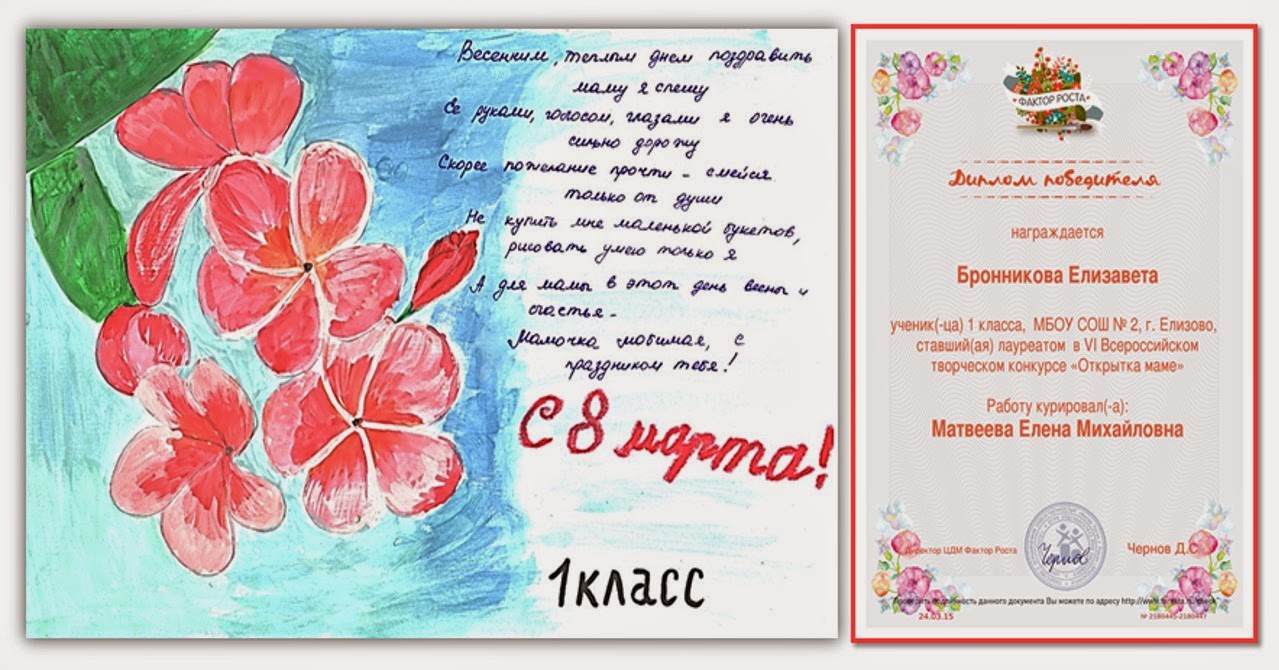 Весенним, теплым днем поздравить
маму я спешу
Ее руками, голосом, глазами я очень
сильно дорожу
Скорее пожелание прочти - смейся
только от души
Не купить мне маленькой букетов,
рисовать умею только я
А для мамы в этот день весны и
счастья -
Мамочка любимая, с
праздником тебя!
С 8 марта!
1 класс
ФАКТОР РОСТА
Диплом победителя
награждается
Бронникова Елизавета
ученик(-ца) 1 класса, МБОУ СОШ № 2, г. Елизово,
ставший(ая) лауреатом в VI Всероссийском
творческом конкурсе «Открытка маме»
Работу курировал(-а):
Матвеева Елена Михайловна
Директор ЦДМ Фактор Роста
Чернов
Чернов Д.С.
подлинность данного документа Вы можете по адресу
24.03.15
№ 2180445-2180447